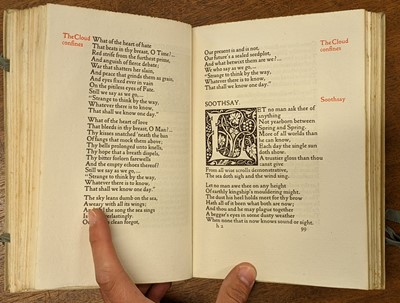 The Cloud
confines
What of the heart of hate
That beats in thy breast, O Time?—
Red strife from the furthest prime,
And anguish of fierce debate;
War that shatters her slain,
And peace that grinds them as grain,
And eyes fixed ever in vain
On the pitiless eyes of Fate.
Still we say as we go,—
"Strange to think by the way,
Whatever there is to know,
That shall we know one day."
What of the heart of love
That bleeds in thy breast, O Man?—
Thy kisses snatched 'neath the ban
Of fangs that mock them above;
Thy bells prolonged unto knells,
Thy hope that a breath dispels,
Thy bitter forlorn farewells
And the empty echoes thereof?
Still we say as we go,—
"Strange to think by the way,
Whatever there is to know,
That shall we know one day."
The sky leans dumb on the sea,
Aweary with all its wings;
And the song the sea sings
everlastingly.
clean forgot,
Our present is and is not,
Our future's a sealed seedplot,
And what betwixt them are we?—
We who say as we go,—
"Strange to think by the way,
Whatever there is to know,
That shall we know one day."
The Cloud
confines
SOOTHSAY.
Soothsay
LET no man ask thee of
anything
Not yearborn between
Spring and Spring.
More of all worlds than
he can know,
Each day the single sun
doth show.
A trustier gloss than thou
canst give
From all wise scrolls demonstrative,
The sea doth sigh and the wind sing.
Let no man awe thee on any height
Of earthly kingship's mouldering might.
The dust his heel holds meet for thy brow
Hath all of it been what both are now;
And thou and he may plague together
A beggar's eyes in some dusty weather
When none that is now knows sound or sight.
h2
99